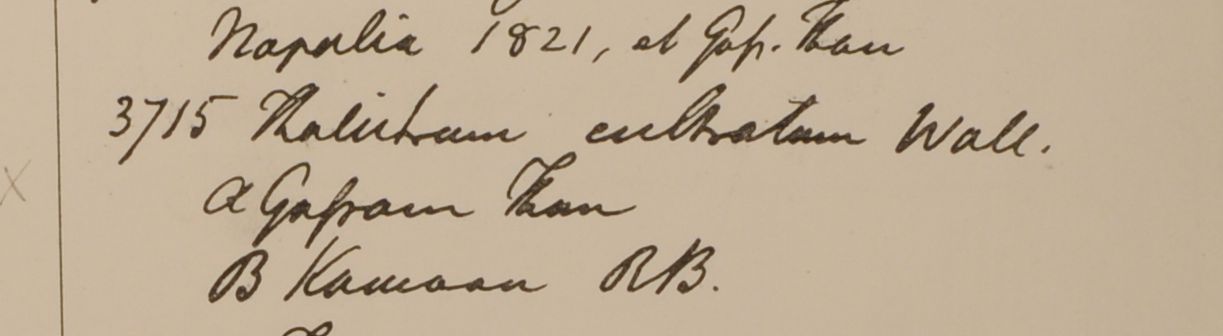 Napalia 1821, et Gos. Than
3715 Thalictrum cultratum Wall.
a Gosam Than
B Kamaon RB.